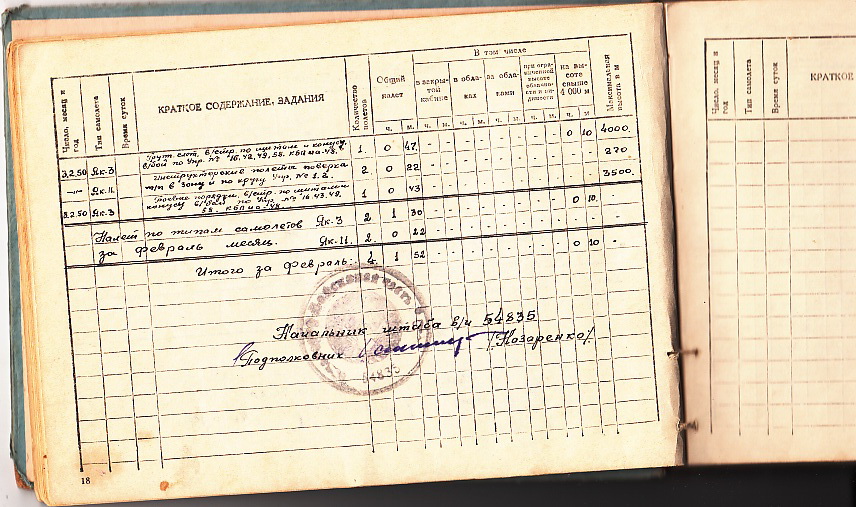 Число, месяц и год
Тип самолета
Время суток
КРАТКОЕ СОДЕРЖАНИЕ, ЗАДАНИЯ
Количество полетов
Общий налет
В том числе
в закрытой кабине
в облаках
за облаками
при ограниченной высоте облачности и видимости
на высоте свыше 4 000 м
Максимальная высота в м
ч. м. ч. м. ч. м. ч. м. ч. м. ч. м.
3.2.50 Як-3 б/стр. по щитам и конусу, 1. 0 47. - - - - - - - - 0 10 4000.
в/бой по Упр. № 16, 42, 49, 58. КБП иа-48.
—"— Як-11. Инструкторские полеты поверка 2 0 22 - - - - - - - - 270
т/п в зону и по кругу Упр. № 1. 2.
8.2.50 Як-3 Боевые порядки, б/стр. по щитам и 1 0 43 - - - - - - - - 0 10. 3500.
конусу в/бой по Упр. № 16 43. 49.
58. КБП иа-48.
Налет по типам самолетов Як-3 2 1 30 - - - - - - - -
за февраль месяц. Як-11. 2. 0 22 - - - - - - - -
Итого за февраль: 4. 1 52 - - - - - - - - 0 10 -
Начальник штаба в/ч 54835
Подполковник /Лозаренко/
Войсковая часть
54835
18
Число, месяц и год
Тип самолета
Время суток
КРАТКОЕ